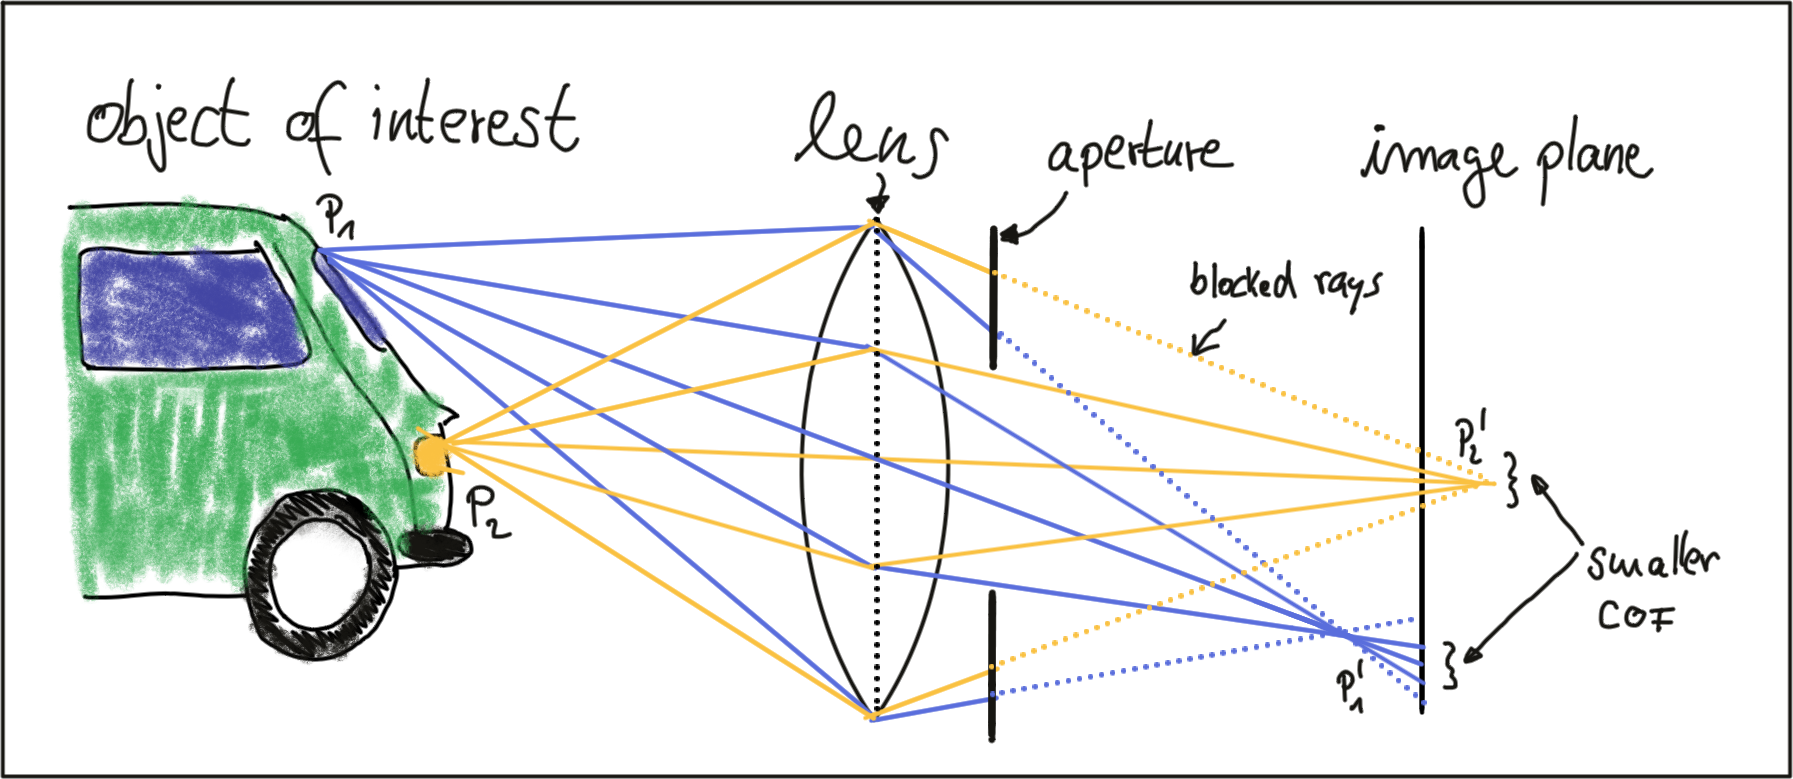 object of interest
lens
aperture
image plane
P1
blocked rays
P2'
P2
smaller
COF
P1'